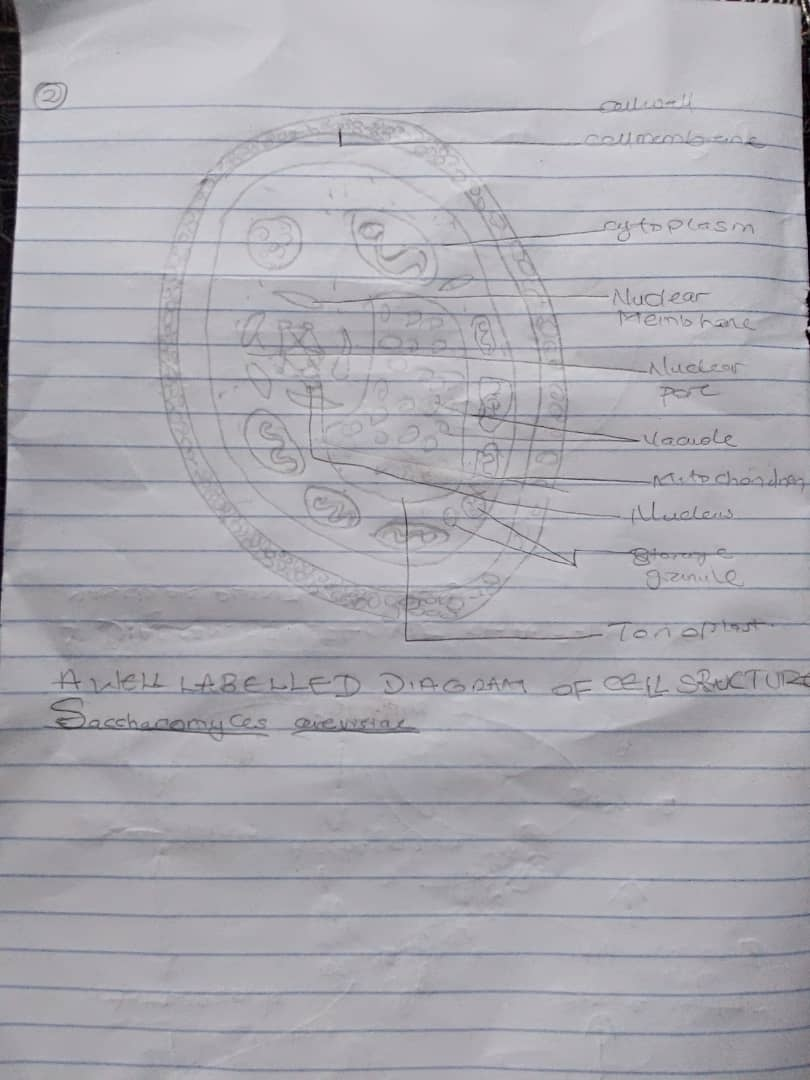 2
cellwall
cellmembrane
cytoplasm
Nuclear
Membrane
Nuclear
pore
Vacuole
Mitochondrion
Nucleus
Storage
granule
Tonoplast
A WELL LABELLED DIAGRAM OF CELL STRUCTURE
Saccharomyces cerevisiae